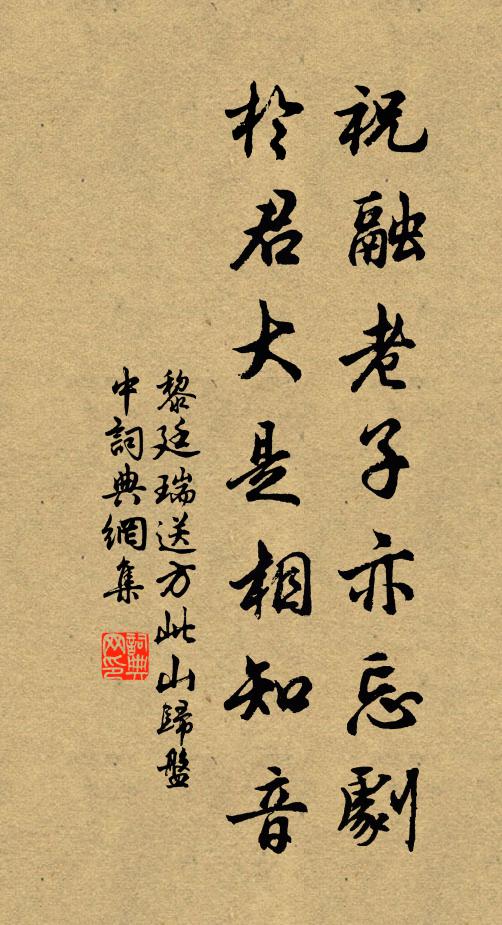 祝融老子亦忘劇
於君大是相知音
黎廷瑞送方此山歸盤
中詞典網集
詞典
网印